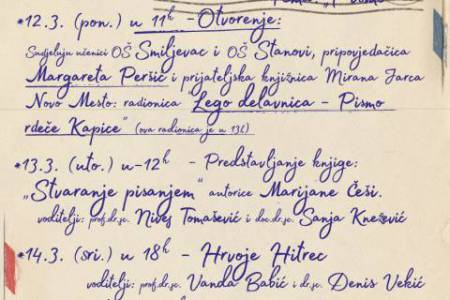 *12.3. (pon.) u 11h - Otvorenje:
Sudjeluju učenici OŠ Smiljevac i OŠ Stanovi, pripovjedačica
Margareta Peršić i prijateljska knjižnica Mirana Jarca
Novo Mesto: radionica Lego delavnica - Pismo
rdeče Kapice" (ova radionica je u 13h)
*13.3. (uto.) u-12h - Predstavljanje knjige:
„Stvaranje pisanjem" autorice Marijane Češi.
voditelji: prof.dr.sc. Nives Tomašević i doc.dr.sc. Sanja Knežević
*14.3. (sri.) u 18h - Hrvoje Hitrec
voditelji: prof.dr.sc. Vanda Babić i dr.sc. Denis Vekić